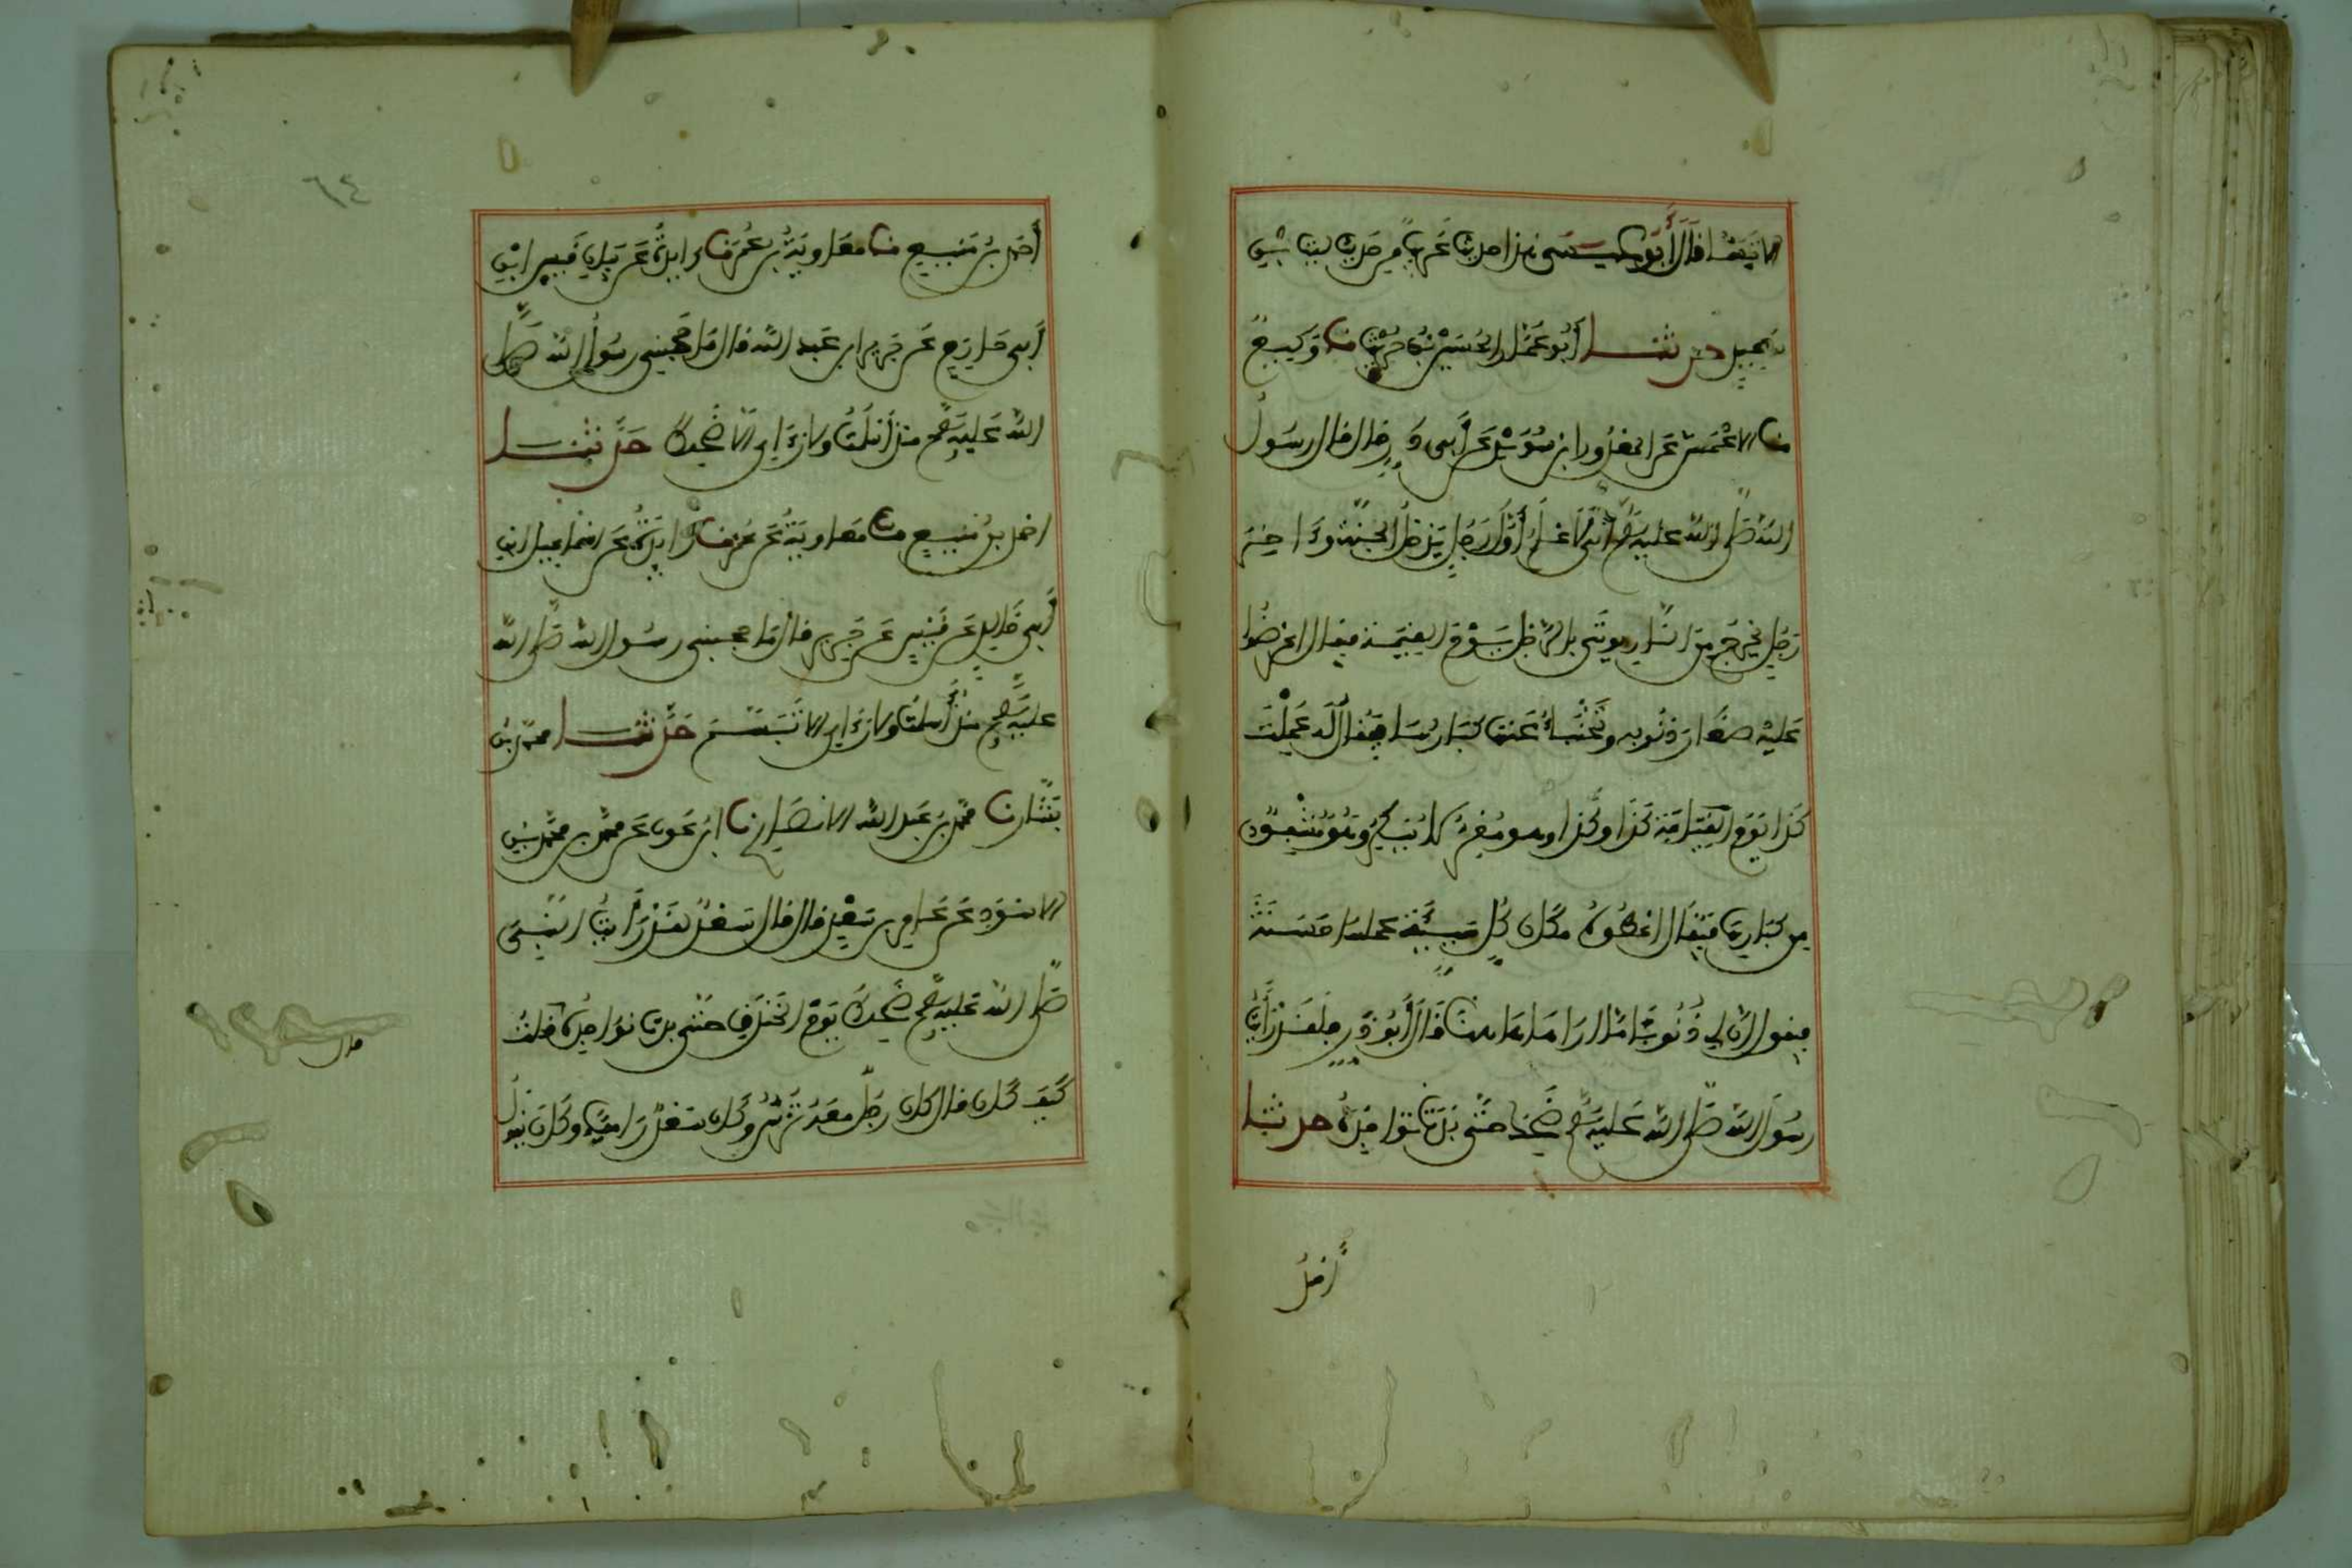 الا تبسما قال أبو عيسى هذا حديث غريب من حديث ليث بن
سعد حدثنا أبو عمار الحسين بن حريث نا وكيع
نا الاعمش عن المعرور بن سويد عن أبي ذر قال قال رسول
الله صلى الله عليه وسلم اني لاعلم أول رجل يدخل الجنة وءاخر
رجل يخرج من النار يوتى بالرجل يوم القيمة فيقال اعرضوا
عليه صغار ذنوبه وتخبأ عنه كبارها فيقال له عملت
كذا يوم القيامة كذا وكذا وهو مقر لا ينكر وهو مشفق
من كبارها فيقال اعطوه مكان كل سيئة عملها حسنة
فيقول ان لي ذنوبا ما اراها هاهنا قال أبو ذر فلقد رأيت
رسول الله صلى الله عليه وسلم ضحك حتى بدت نواجذه حدثنا
أحمد
٦٤
أحمد بن منيع نا معاوية بن عمرو نا زايدة عن بيان عن قيس ابن
أبي حازم عن جرير ابن عبد الله قال ما حجبني رسول الله صلى
الله عليه وسلم منذ أسلمت ولا رءاني الا ضحك حدثنا
احمد بن منيع نا معاوية بن عمرو نا زايدة عن اسماعيل ابن
أبي خالد عن قيس عن جرير قال ما حجبني رسول الله صلى الله
عليه وسلم منذ أسلمت ولا رءاني الا تبسم حدثنا محمد بن
بشار نا محمد بن عبد الله الانصاري نا ابن عون عن محمد بن محمد بن
الاسود عن عامر بن سعد قال قال سعد لقد رأيت النبي
صلى الله عليه وسلم ضحك يوم الخندق حتى بدت نواجذه قلت
كيف كان قال كان رجل معه ترس وكان سعد راميا وكان يقول
قال